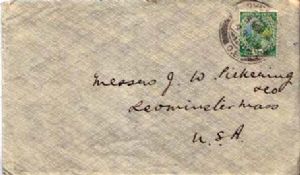 Messrs J. W. Pickering
& Co
Leominster Mass
U.S.A.